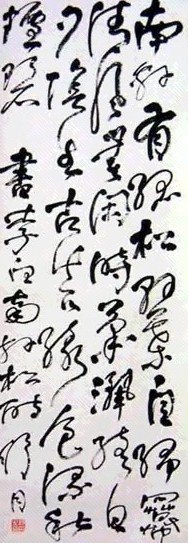 南軒有孤松柯葉自綿冪
清風無閑時蕭灑終日
夕陰生古苔綠色染秋
煙碧 書李白南軒松